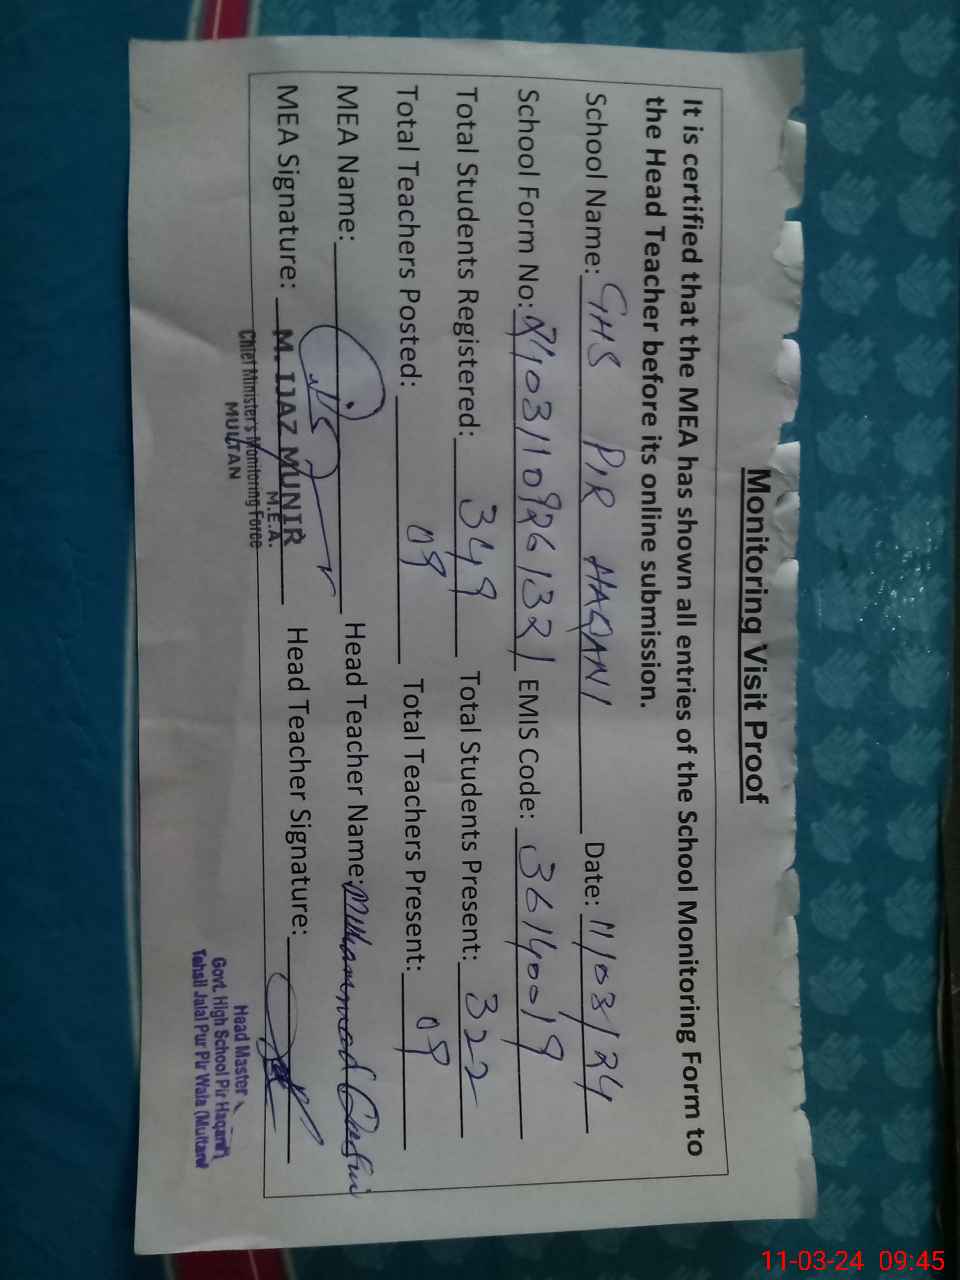 Monitoring Visit Proof
It is certified that the MEA has shown all entries of the School Monitoring Form to
the Head Teacher before its online submission.
School Name: GHS PIR HAQANI Date: 11/03/24
School Form No: EMIS Code: 36140019
Total Students Registered: 349 Total Students Present: 322
Total Teachers Posted: 09 Total Teachers Present: 09
MEA Name: Head Teacher Name: Muhammad
MEA Signature: Head Teacher Signature:
M. IJAZ MUNIR
M.E.A.
Chief Minister's Monitoring Force
MULTAN
Head Master
Govt. High School Pir Haqani
Tehsil Jalal Pur Pir Wala (Multan)
11-03-24 09:45